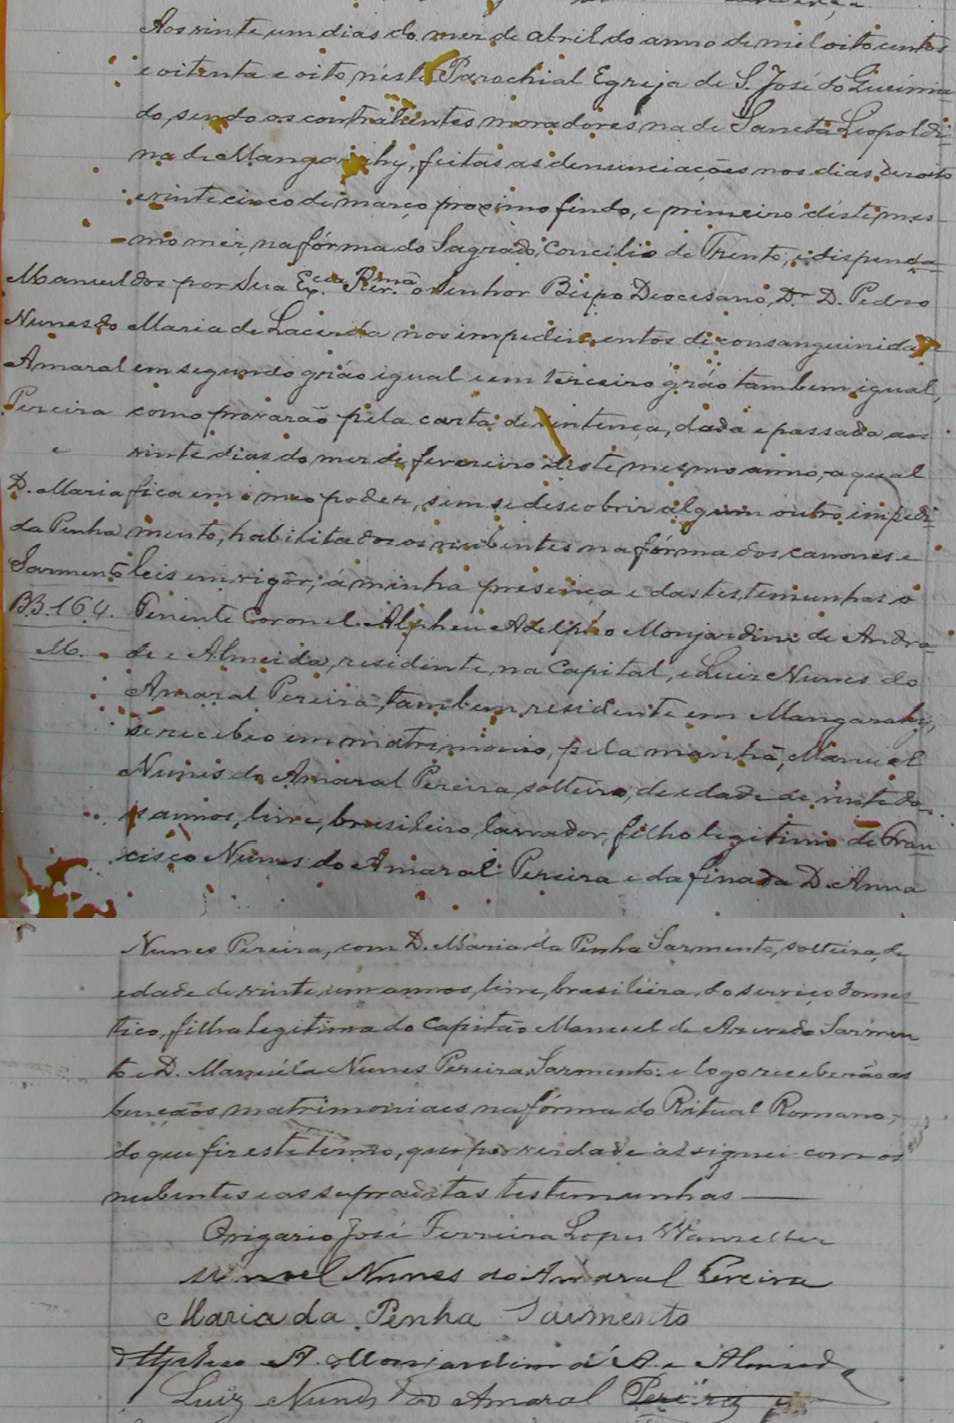 Aos vinte um dias do mez de abril do anno de mil oito centos
e oitenta e oito, n'ésta Parochial Egreja de S. José do Queima-
do, sendo os contrahentes moradores na de Sancta Leopoldi-
na de Mangarahy, feitas as denunciações nos dias dezoito
e vinte cinco de março proximo findo, e primeiro d'éste mes-
mo mez, na fórma do Sagrado Concilio de Trento, e dispensa-
dos por Sua Exc.cia Rev.ma o Senhor Bispo Diocesano, Dr. D. Pedro
Maria de Lacerda nos impedimentos de consanguinidade
em segundo gráo igual e em terceiro gráo tambem igual,
como provarão pela carta de sentença, dada e passada aos
vinte dias do mez de fevereiro d'este mesmo anno, a qual
fica em meo poder, sem se descobrir algum outro impedi-
mento, habilitados os nubentes na fórma dos canones e
leis em vigôr; á minha presença e das testemunhas o
Tenente Coronel Alpheu Adelpho Monjardim de Andra-
de e Almeida, residente na Capital, e Luiz Nunes do
Amaral Pereira tambem residente em Mangarahy,
se recebeo em matrimonio, pela manhã, Manuel
Nunes do Amaral Pereira, solteiro, de edade de vinte do-
is annos, livre, brasileiro, lavrador, filho legitimo de Fran-
cisco Nunes do Amaral Pereira e da finada D. Anna
Manuel
Nunes do
Amaral
Pereira
e
D. Maria
da Penha
Sarmento
BB. 164.
M.
Nunes Pereira, com D. Maria da Penha Sarmento, solteira, de
edade de vinte um annos, livre, brasileira, do serviço domes-
tico, filha legitima do Capitão Manuel de Azevedo Sarmen
to e D. Manuéla Nunes Pereira Sarmento: e logo receberão as
bençãos matrimoniaes na fórma do Ritual Romano;
do que fiz este termo, que por verdade assignei com os
nubentes e as supraditas testemunhas
O vigario José Ferreira Lopes Wanzeller
Manoel Nunes do Amaral Pereira
Maria da Penha Sarmento
Alpheo A. Monjardim d'A. e Almeida
Luiz Nunes do Amaral Pereira